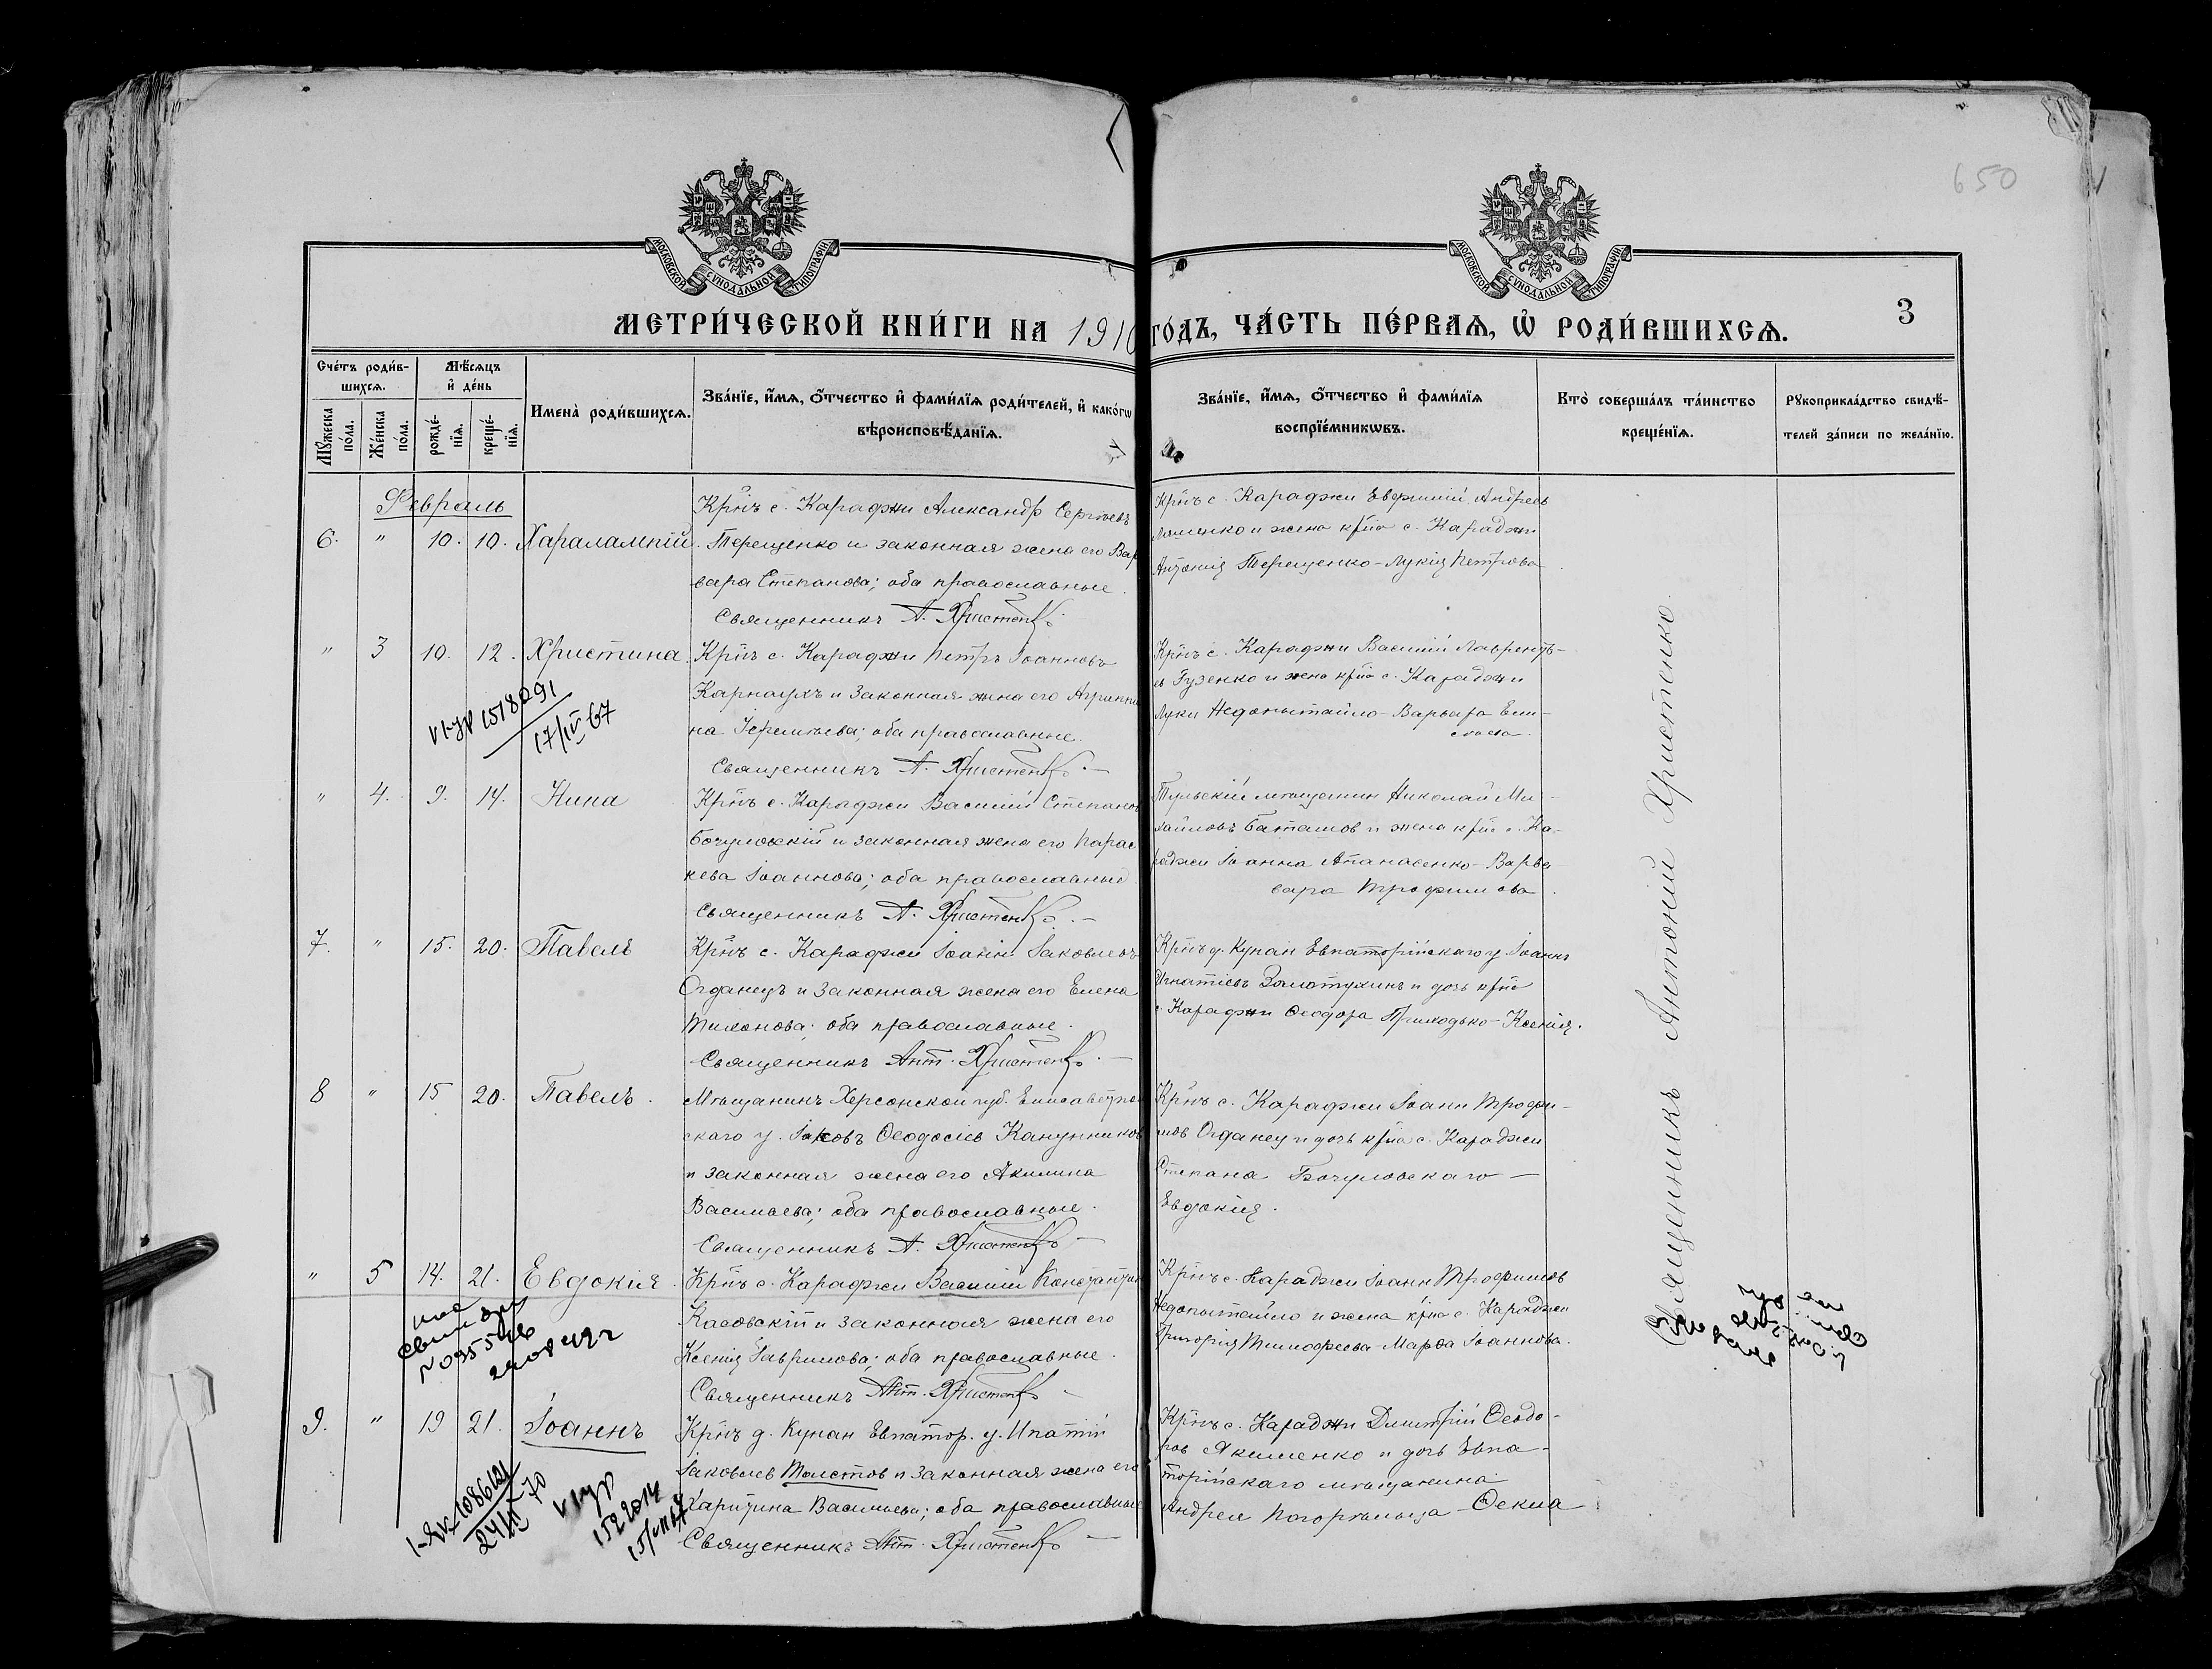 650
МОСКОВСКОЙ СУНОДАЛЬНОЙ ТИПОГРАФІИ
МОСКОВСКОЙ СУНОДАЛЬНОЙ ТИПОГРАФІИ
МЕТРИ́ЧЕСКОЙ КНИ́ГИ НА 1910 ГО́ДЪ, ЧА́СТЬ ПЕ́РВАѦ, Ѡ҆ РОДИ́ВШИХСѦ.
3
Сче́тъ роди́в-
шихсѧ.
Мѹ́жеска по́ла.
Же́нска по́ла.
Мѣ́сѧцъ
и҆ де́нь
рожде́-
нїѧ.
креще́-
нїѧ.
И҆мена̀ роди́вшихсѧ.
Зва́нїе, и҆́мѧ, ѻ҆́тчество и҆ фами́лїѧ роди́телей, и҆ како́гѡ
вѣроисповѣ́данїѧ.
Зва́нїе, и҆́мѧ, ѻ҆́тчество и҆ фами́лїѧ
воспрїе́мникѡвъ.
Кто̀ соверша́лъ та́инство
креще́нїѧ.
Рꙋкоприкла́дство свидѣ́-
телей за́писи по жела́нїю.
Февраль
6. " 10. 10. Харалампій.
Крнъ с. Караджи Александр Сергѣевъ
Терещенко и законная жена его Вар
вара Степанова; оба православные.
Священникъ А. Христенко.
Крнъ с. Караджи Андреев
и жена крна с. Караджи
Антонія Терещенко - Лукія Петрова.
" 3 10. 12. Христина.
Крнъ с. Караджи Петръ Іоанновъ
Карнаухъ и законная жена его Агриппи
на Іереміева; оба православные.
Священникъ А. Христенко. —
Крнъ с. Караджи Василій Лаврентъ-
ев Гузенко и жена крна с. Караджи
Луки Недопытайло - Варвара Ели-
сѣева.
1518091
17/IV 67
" 4. 9. 14. Нина
Крнъ с. Караджи Василій Степанов
Бочуловскій и законная жена его Парас
кева Іоаннова; оба православные.
Священникъ А. Христенко. —
Тульскій мѣщанин Николай Ми-
хайловъ Баташов и жена крна с. Ка-
раджи Іоанна Апанасенко - Варва
вара Трофимова.
7. " 15. 20. Павелъ
Крнъ с. Караджи Іоанн Іаковлевъ
Огданецъ и законная жена его Елена
Тихонова; оба православные.
Священникъ Ант. Христенко. —
Крнъ д. Кунан Евпаторійскаго у. Іоаннъ
Игнатіевъ Золотухинъ и дочь крна
с. Караджи Ѳеодора Приходько - Ксенія.
8 " 15 20. Павелъ.
Мѣщанинъ Херсонской губ. Елисаветград
скаго у. Іаковъ Ѳеодосіев Канунников
и законная жена его Акилина
Васильева; оба православные.
Священникъ А. Христенко —
Крнъ с. Караджи Іоанн Трофи-
мовъ Огданец и дочь крна с. Караджи
Степана Бочуловскаго —
Евдокія.
" 5 14. 21. Евдокія.
Крнъ с. Караджи Василій Константин
Касовскій и законная жена его
Ксенія Гаврилова; оба православные.
Священникъ Ант. Христенко —
Крнъ с. Караджи Іоанн Трофимов
Недопытайло и жена крна с. Караджи
Григорія Тимофеева - Марѳа Іоаннова.
9. " 19 21. Іоаннъ
Крнъ д. Кунан Евпатор. у. Ипатій
Іаковлев Толстов и законная жена его
Харитина Васильева; оба православные
Священникъ Ант. Христенко —
Крнъ с. Караджи Димитрій Ѳеодо-
ров Якименко и дочь Евпа-
торійскаго мѣщанина
Андрея Погорѣльца - Ѳекла
Священникъ Антоній Христенко.